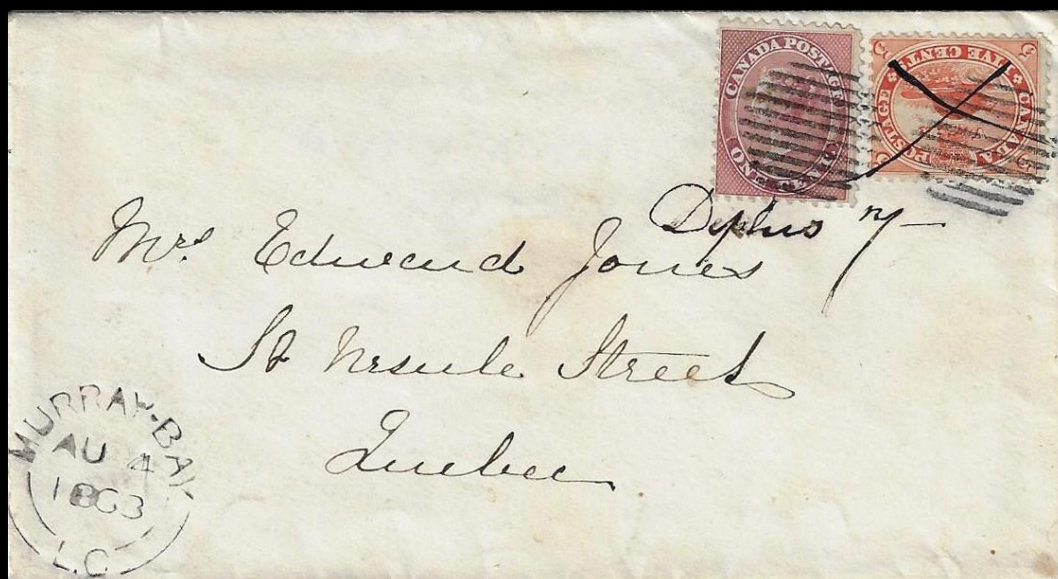 CANADA POSTAGE
ONE CENT
CANADA POSTAGE
FIVE CENTS
Mrs. Edward Jones
St Ursule Street
Quebec
MURRAY-BAY
AU 4
1863
L.C